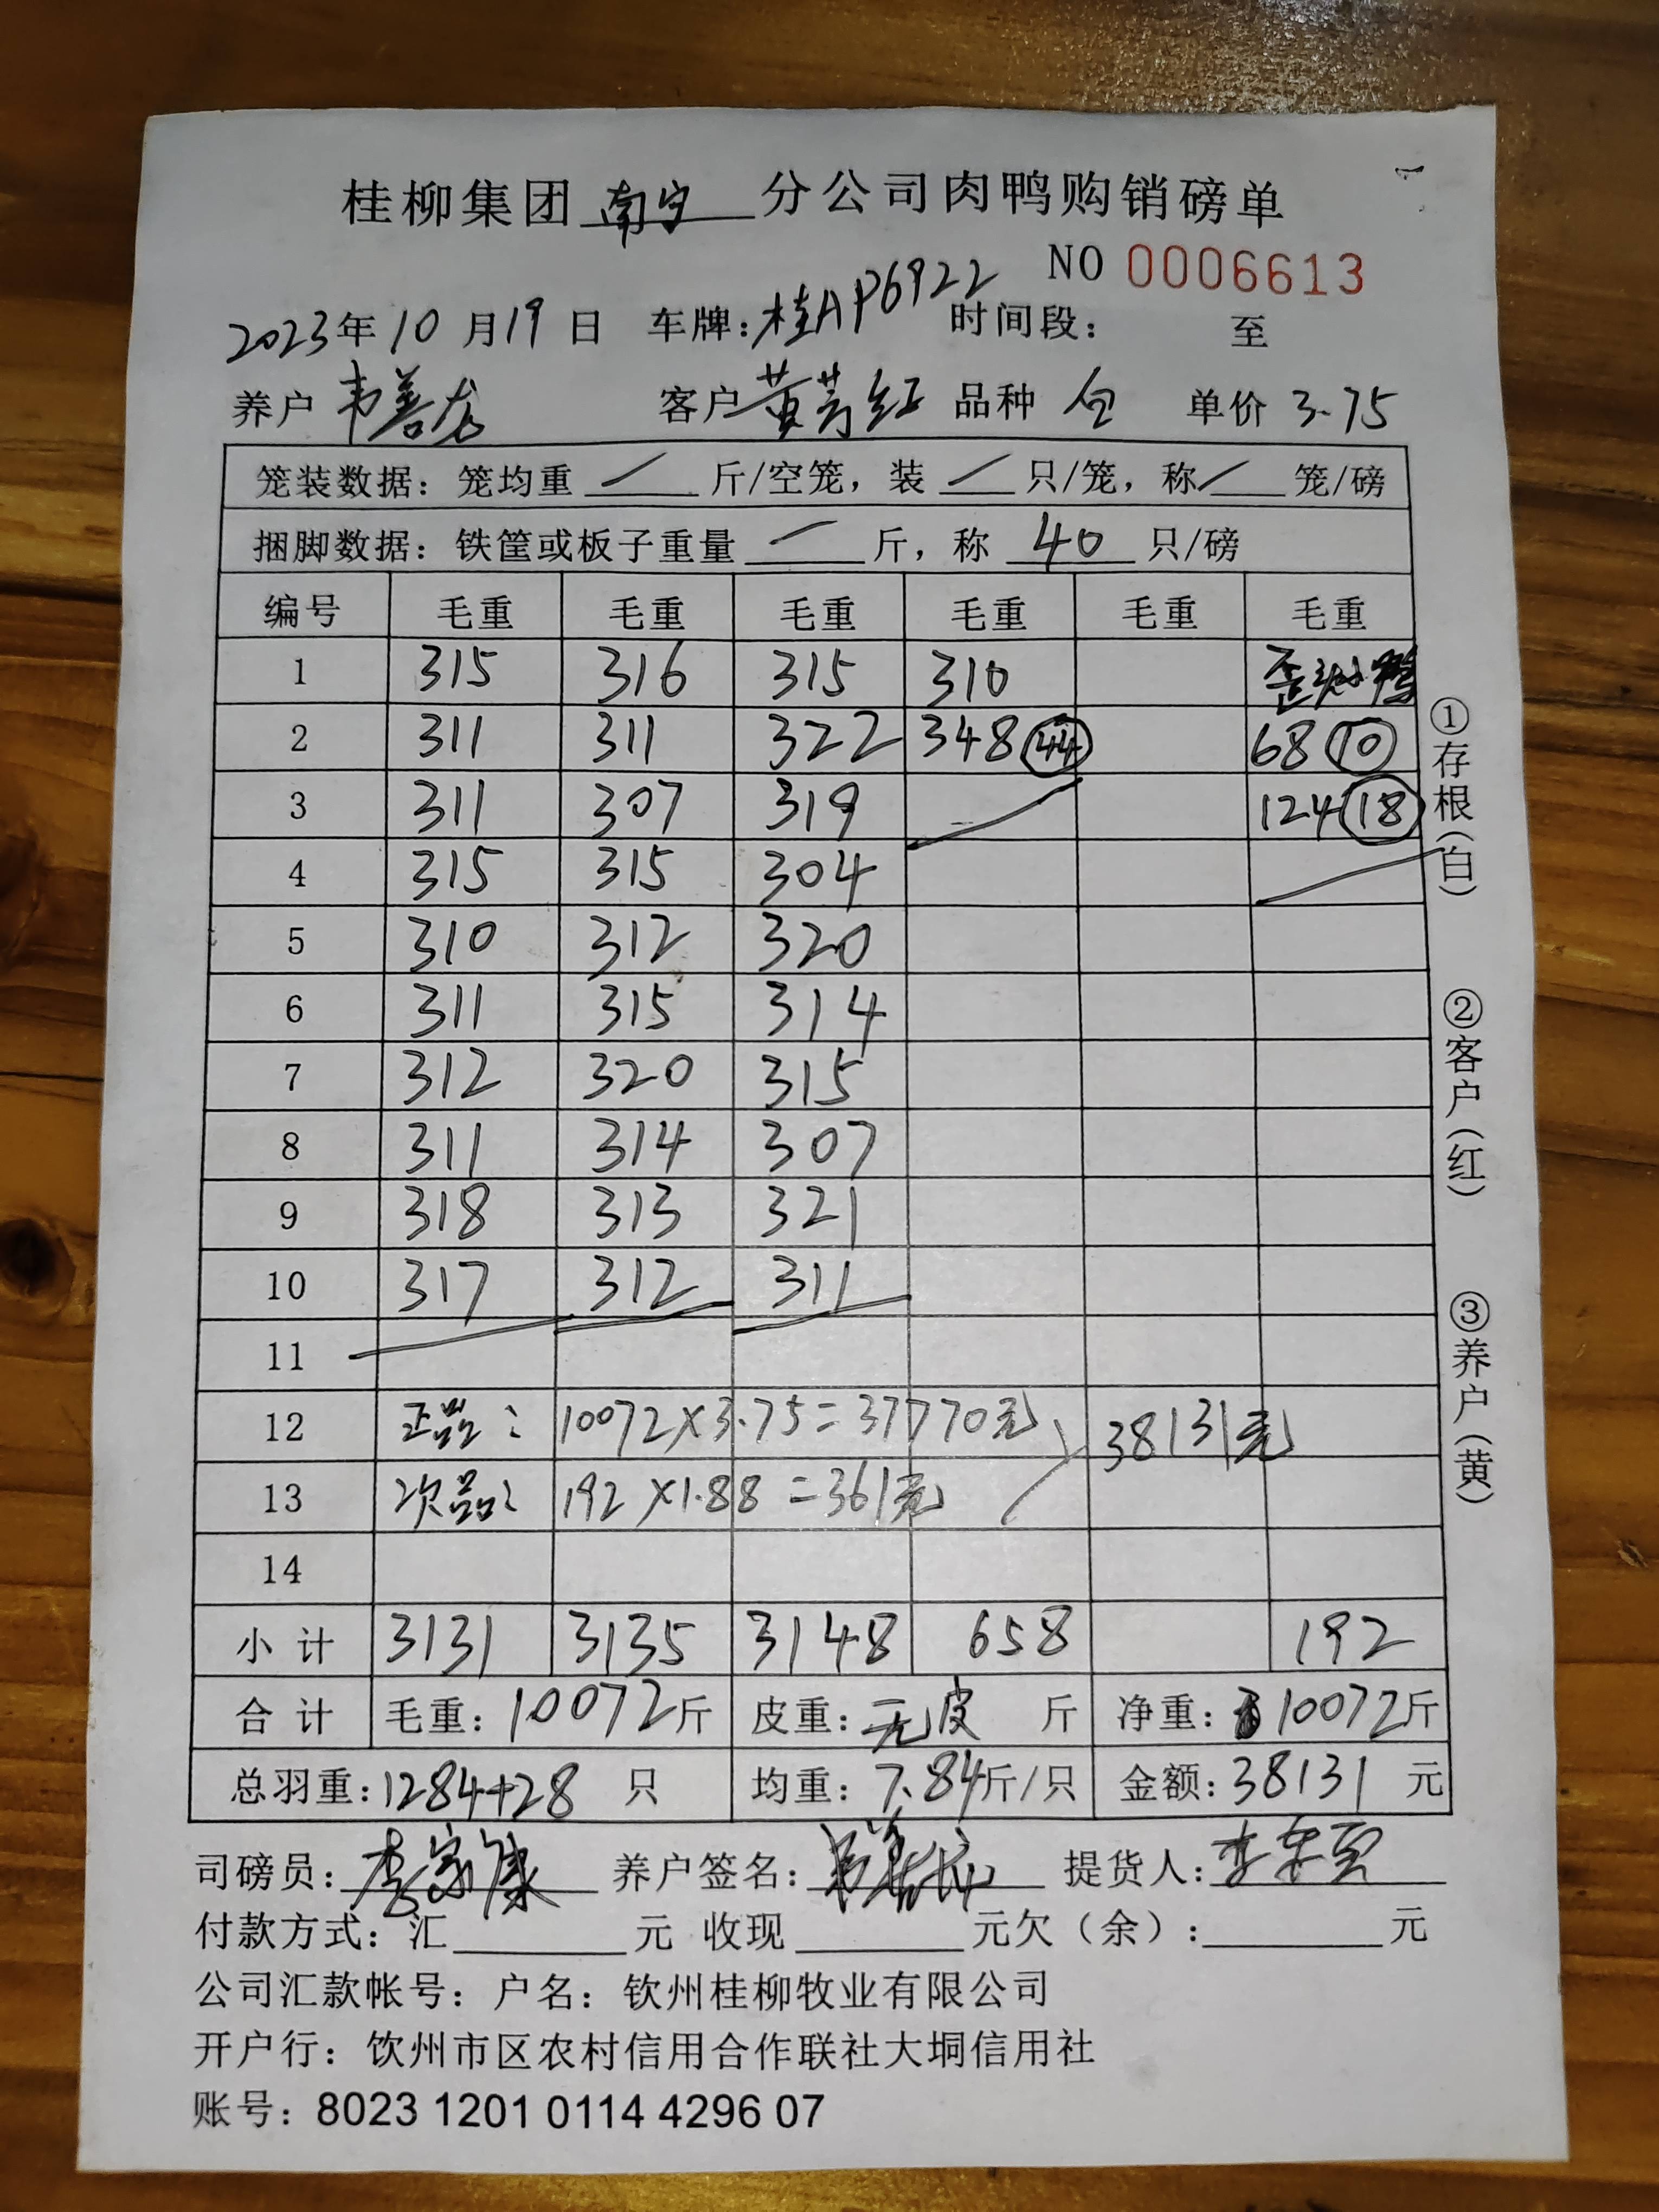 桂柳集团 南宁 分公司肉鸭购销磅单
NO 0006613
2023年10月19日 车牌:桂AP6922 时间段: 至
养户 韦善龙 客户 黄芳红 品种 仓 单价 3.75
笼装数据：笼均重 / 斤/空笼，装 / 只/笼，称 / 笼/磅
捆脚数据：铁筐或板子重量 / 斤，称 40 只/磅
编号 毛重 毛重 毛重 毛重 毛重 毛重
1 315 316 315 310 歪头小鸭
2 311 311 322 348 44 68 10
3 311 307 319 124 18
4 315 315 304
5 310 312 320
6 311 315 314
7 312 320 315
8 311 314 307
9 318 313 321
10 317 312 311
11
12 正品： 10072×3.75=37770元 38131元
13 次品： 192×1.88=361元
14
小计 3131 3135 3148 658 192
合计 毛重：10072斤 皮重：无皮 斤 净重：10072斤
总羽重：1284+28 只 均重：7.84斤/只 金额：38131 元
司磅员：李家康 养户签名：韦善龙 提货人：
付款方式：汇 元 收现 元欠（余）： 元
公司汇款帐号：户名：钦州桂柳牧业有限公司
开户行：钦州市区农村信用合作联社大垌信用社
账号：8023 1201 0114 4296 07
①存根（白）
②客户（红）
③养户（黄）